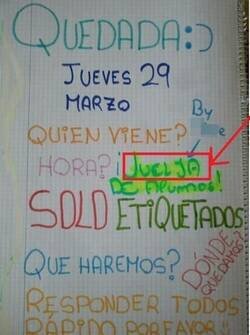 QUEDADA:)
JUEVES 29
MARZO
By
QUIEN VIENE?
HORA? ¡JUELJA
DE ALUMNOS!
SOLO ETIQUETADOS
DÓNDE
QUEDAMOS?
QUE HAREMOS?
RESPONDER TODOS
RAPIDO PORFAVOR!!